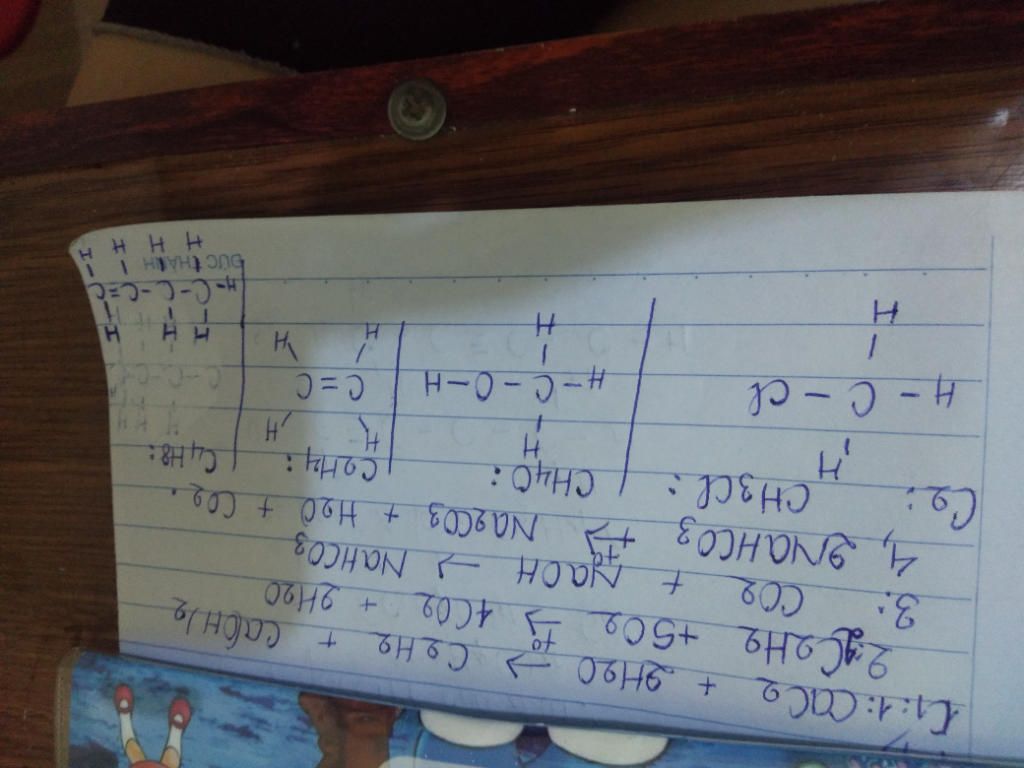 C1: 1: CaC2 + 2H2O → C2H2 + Ca(OH)2
2: 2C2H2 + 5O2 t° → 4CO2 + 2H2O
3: CO2 + NaOH → NaHCO3
4, 2NaHCO3 t° → Na2CO3 + H2O + CO2.
C2: CH3Cl: CH4O: C2H4: C4H8:
H H H H H H H
H - C - Cl H - C - O - H C = C H - C - C - C = C
H H H H H H H H
ĐỨC THÀNH